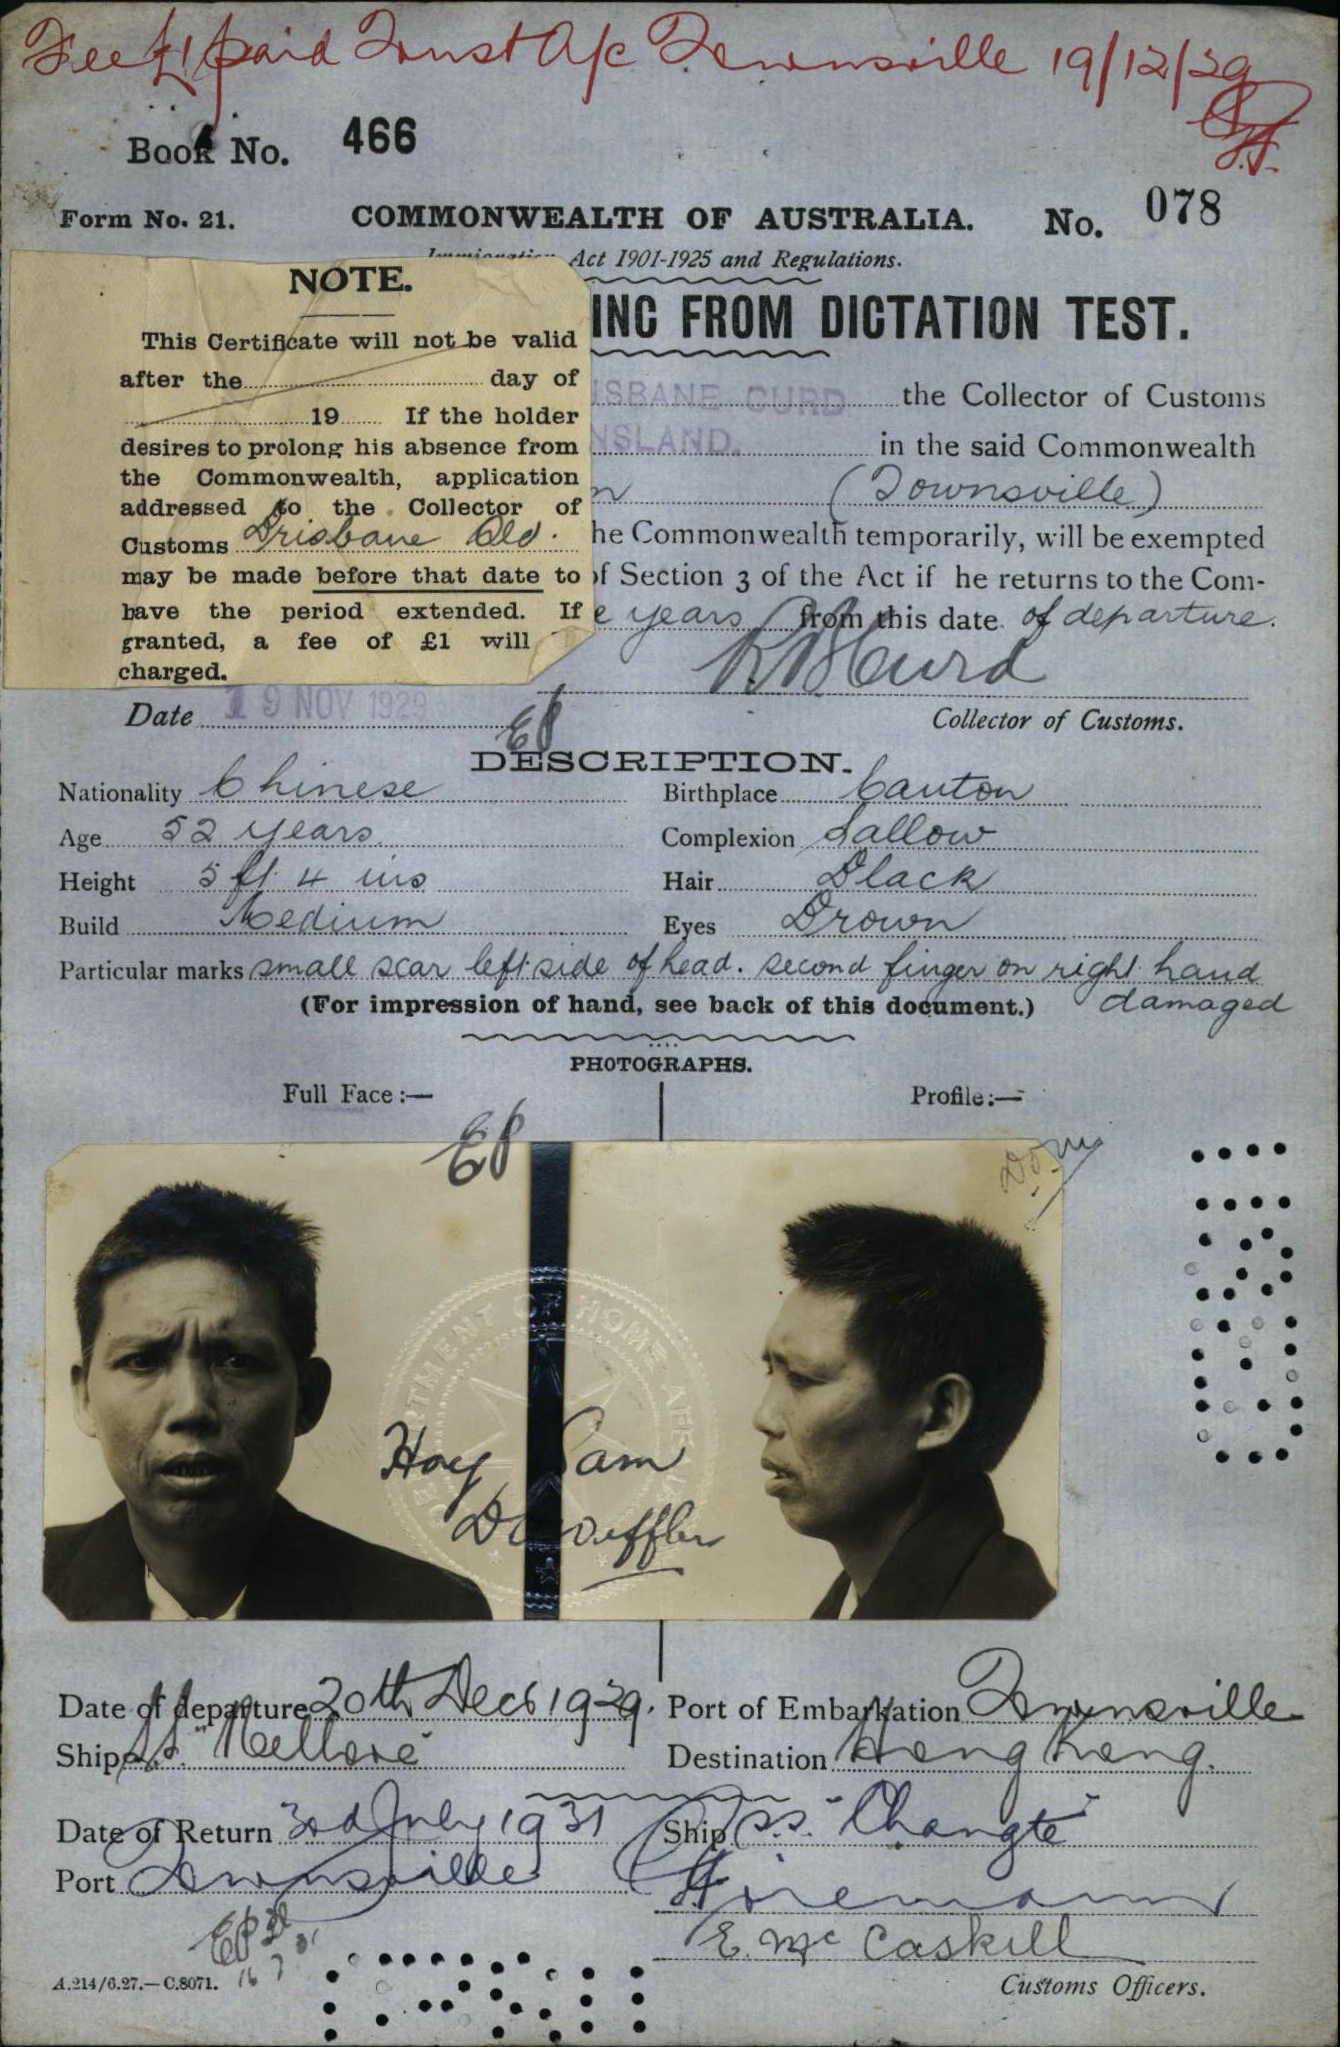 Fee £1 paid Trust A/c Townsville 19/12/29
Book No. 466
Form No. 21. COMMONWEALTH OF AUSTRALIA. No. 078
Immigration Act 1901-1925 and Regulations.
ING FROM DICTATION TEST.
NOTE.
This Certificate will not be valid
after the day of
19 If the holder
desires to prolong his absence from
the Commonwealth, application
addressed to the Collector of
Customs Brisbane Qld.
may be made before that date to
have the period extended. If
granted, a fee of £1 will
charged.
ISBANE CURD the Collector of Customs
NSLAND. in the said Commonwealth
(Townsville)
he Commonwealth temporarily, will be exempted
of Section 3 of the Act if he returns to the Com-
e years from this date of departure.
Curd
Date 19 NOV 1929 Collector of Customs.
DESCRIPTION.
Nationality Chinese Birthplace Canton
Age 52 years. Complexion Sallow
Height 5 ft 4 ins Hair Black
Build Medium Eyes Brown
Particular marks small scar left side of head. second finger on right hand
damaged
(For impression of hand, see back of this document.)
PHOTOGRAPHS.
Full Face:— Profile:—
DEPARTMENT OF HOME AFFAIRS
Hoey Sam
Date of departure 20th Dec 1929. Port of Embarkation Townsville
Ship S.S. "Nellore" Destination Hong Kong.
Date of Return 3rd July 1931 Ship S.S. "Changte"
Port Townsville
E. McCaskill
A.214/6.27.—C.8071. Customs Officers.